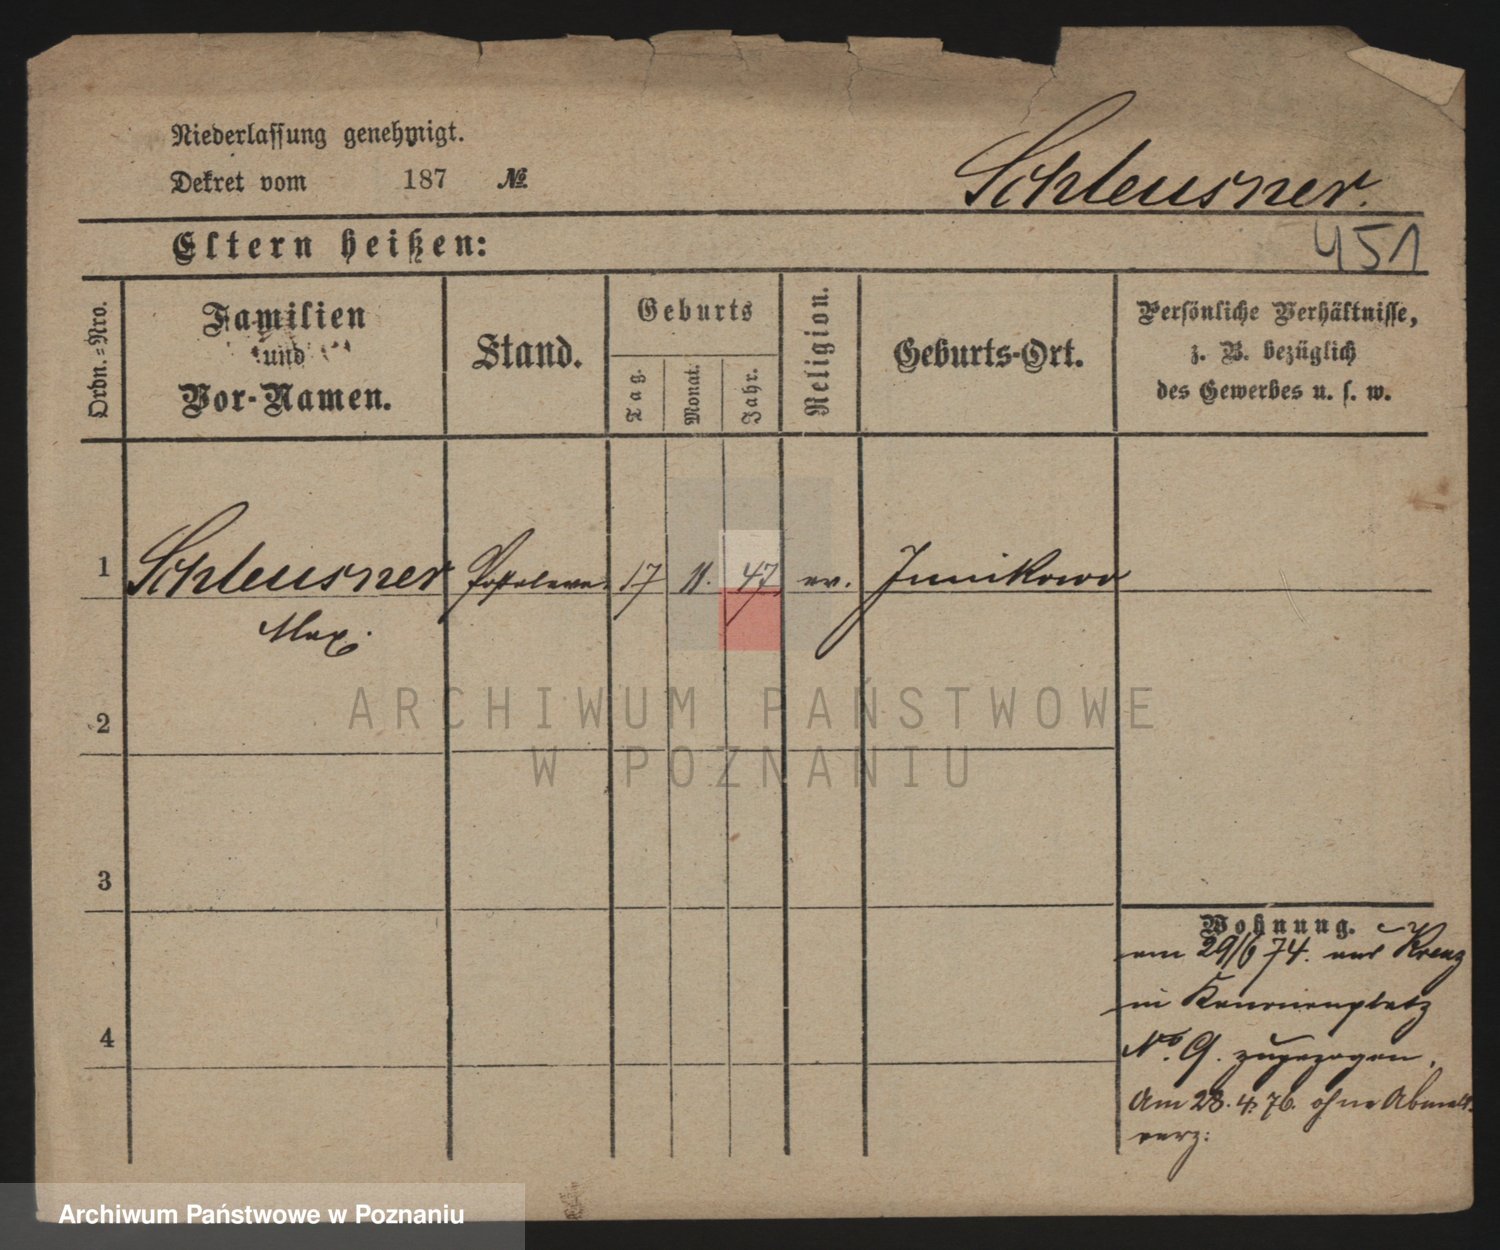 Niederlassung genehmigt.
Dekret vom 187 №
Schleusner.
Eltern heißen:
451
Ordn.=Nro.
Familien
und
Vor-Namen.
Stand.
Geburts
Tag.
Monat.
Jahr.
Religion.
Geburts-Ort.
Persönliche Verhältnisse,
z. B. bezüglich
des Gewerbes u. s. w.
1 Schleusner Posteleve. 17 11. 47. ev. Junikowo
Max.
2
3
4
Wohnung.
am 29/6 74. aus Kreuz
in Kanonenplatz
No. 9. zugezogen.
Am 28.4.76. ohne Abmeld.
verz:
ARCHIWUM PAŃSTWOWE
W POZNANIU
Archiwum Państwowe w Poznaniu